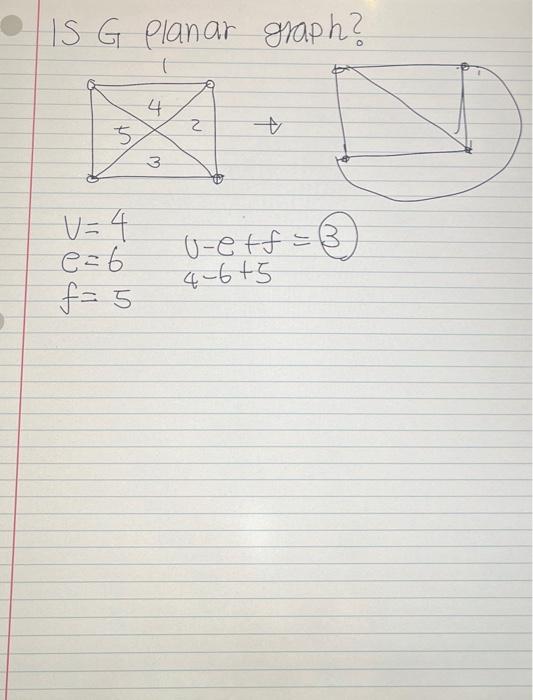 IS G planar graph?
1
4
5 2
3
V = 4
e = 6
f = 5
v - e + f = 3
4 - 6 + 5